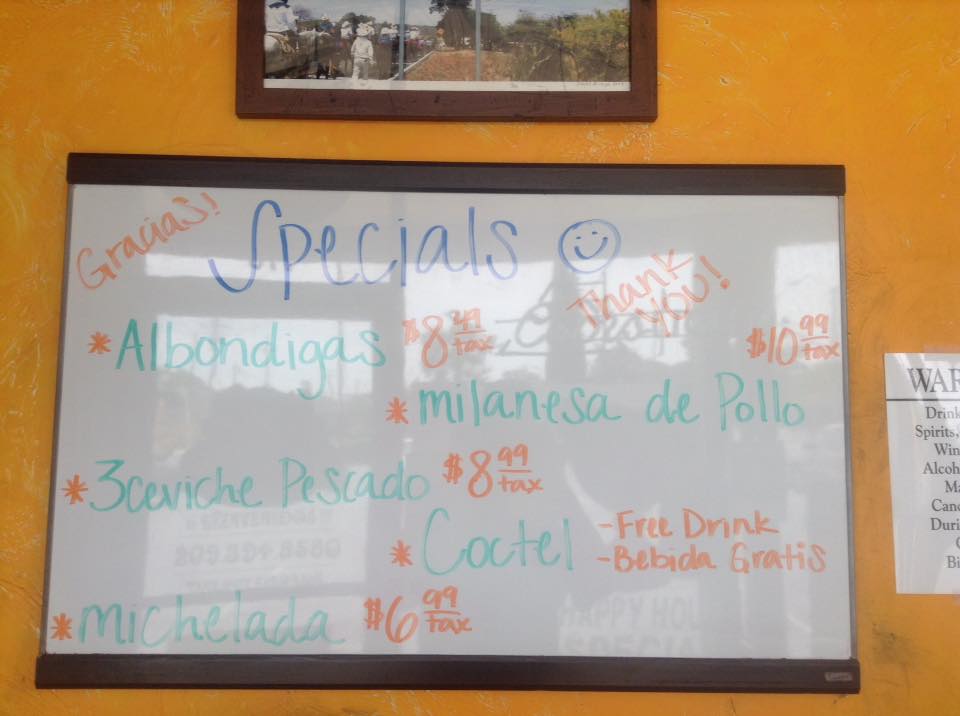 Gracias!
Specials
Thank
YOU!
* Albondigas $8 49/tax
$10 99/tax
* milanesa de Pollo
* 3ceviche Pescado $8 99/tax
* Coctel
- Free Drink
- Bebida Gratis
* michelada $6 99/tax
WAR
Drink
Spirits,
Win
Alcoh
Ma
Canc
Duri
Bi
HAPPY HOU